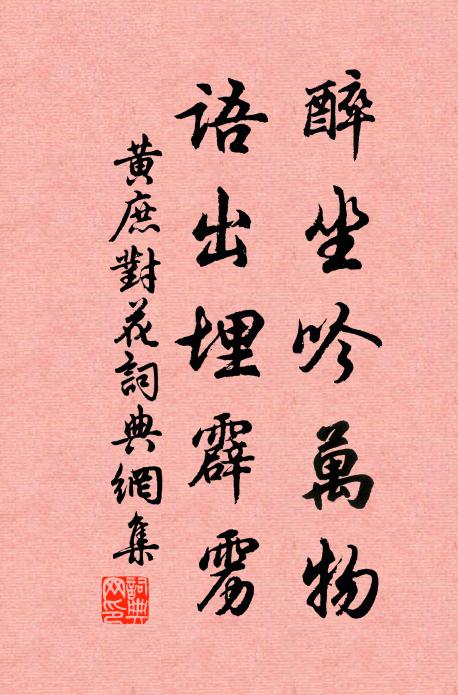 醉坐吟萬物
語出埋霹雳
黃庶對花詞典網集
詞典網印